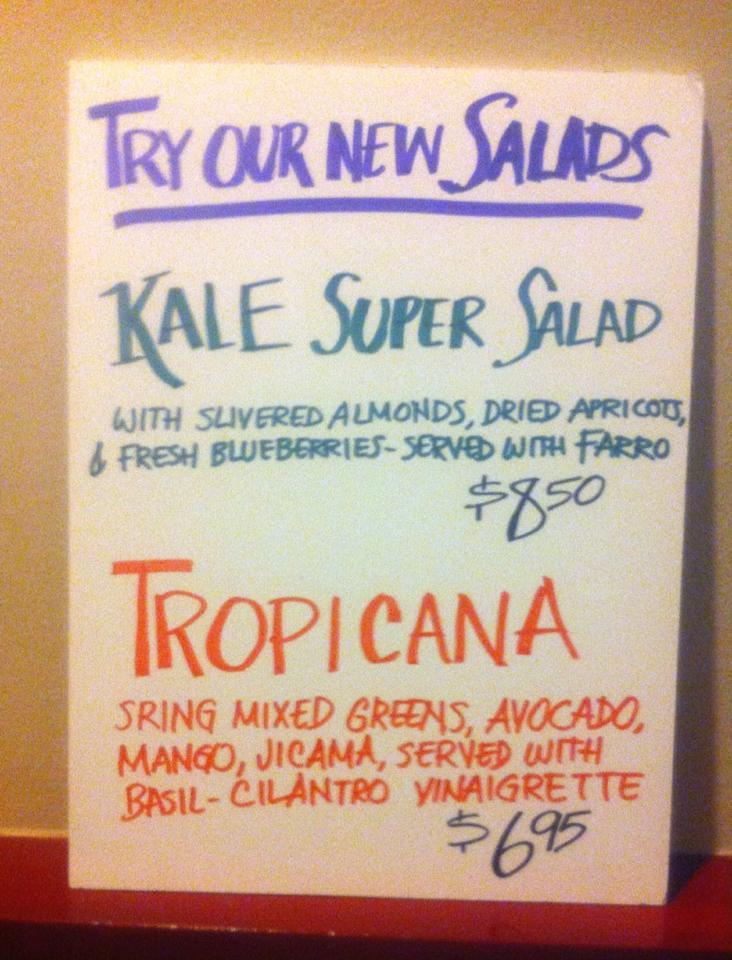 TRY OUR NEW SALADS
KALE SUPER SALAD
WITH SLIVERED ALMONDS, DRIED APRICOTS,
& FRESH BLUEBERRIES- SERVED WITH FARRO
$850
TROPICANA
SRING MIXED GREENS, AVOCADO,
MANGO, JICAMA, SERVED WITH
BASIL- CILANTRO VINAIGRETTE
$695